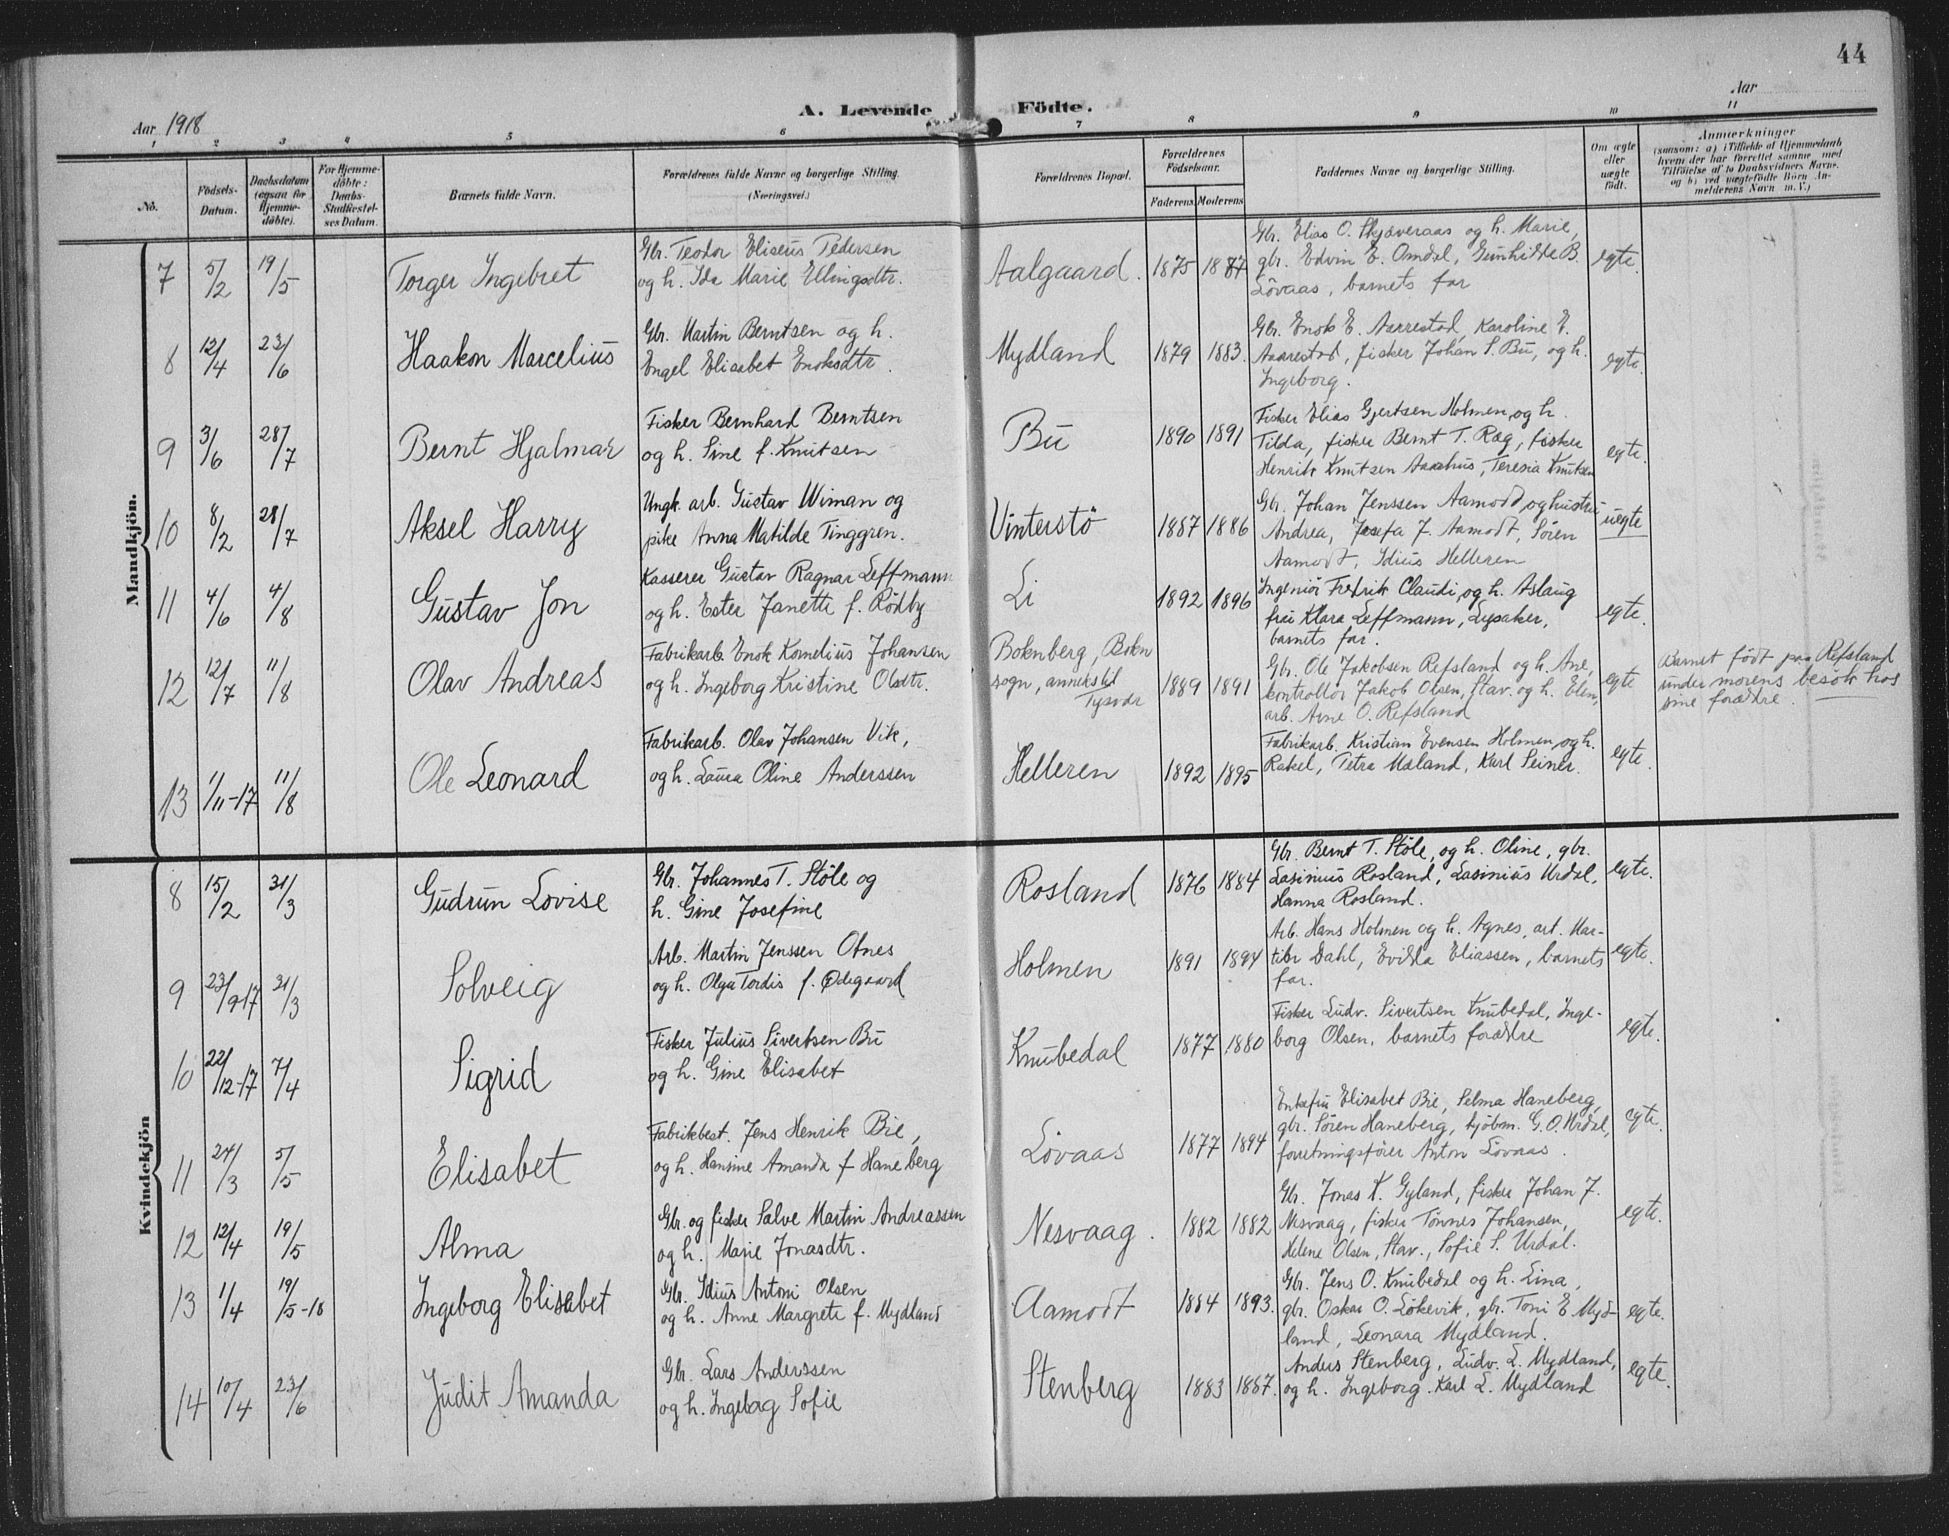 44
Aar 1918
A. Levende
Födte.
Aar
1 2 3 4 5 6 7 8 9 10 11
No.
Födsels-
Datum.
Daabsdatum
(ogsaa for
Hjemme-
döbte).
For Hjemme-
döbte:
Daabs-
Stadfæstel-
ses Datum.
Barnets fulde Navn.
Forældrenes fulde Navne og borgerlige Stilling.
(Næringsvei.)
Forældrenes Bopæl.
Forældrenes
Födselsaar.
Faderens. Moderens.
Faddernes Navne og borgerlige Stilling.
Om ægte
eller
uægte
födt.
Anmærkninger
(saasom: a) i Tilfælde af Hjemmedaab
hvem der har forrettet samme med
Tilföielse af to Daabsvidners Navne.
og b) ved uægtefödte Börn An-
melderens Navn m. V.)
Mandkjön.
7 5/2 19/5 Torger Ingebret
Gbr. Teodor Eliseus Pedersen
og h. Ida Marie Ellingsdtr.
Aalgaard. 1875 1887
Gbr. Elias O. Skjæveraas og h. Marie,
gbr. Edvin E. Omdal, Gunhilde B.
Lövaas, barnets far
egte.
8 12/4 23/6 Haakon Marcelius
Gbr. Martin Berntsen og h.
Engel Elisabet Enoksdtr.
Mydland 1879 1883.
Gbr. Enok E. Aarrestad, Karoline E.
Aarestad, fisker Johan S. Bu, og h.
Ingeborg.
egte.
9 3/6 28/7 Bernt Hjalmar
Fisker Bernhard Berntsen
og h. Sine f. Knutsen
Bu 1890 1891
Fisker Elias Gjertsen Holmen, og h.
Tilda, fisker Bernt T. Ræg, fisker
Henrik Knutsen Aarhus, Teresia Knutsen
egte.
10 8/2 28/7 Aksel Harry
Ungk. arb. Gustav Wiman og
pike Anna Matilde Tinggren.
Vinterstö 1887 1886
Gbr. Johan Jenssen Aamodt, og hustru
Andrea, Josefa J. Aamodt, Sören
Aamodt, Idius Helleren
uegte
11 4/6 4/8 Gustav Jon
Kasserer Gustav Ragnar Leffmann
og h. Ester Janette f. Rödby
Li 1892 1896
Ingeniör Fredrik Claudi, og h. Aslaug
fru Klara Leffmann, Lysaker,
barnets far.
egte.
12 12/7 11/8 Olav Andreas
Fabrikarb. Enok Kornelius Johansen
og h. Ingeborg Kristine Olsdtr.
Boknberg, Bokn
sogn, anneks til
Tysvær
1889 1891
Gbr. Ole Jakobsen Refsland og h. Ane,
kontrollör Jakob Olsen, Stav. og h. Elen,
arb. Arne O. Refsland
egte
Barnet födt paa Refsland
under morens besök hos
sine forældre.
13 1/11-17 11/8 Ole Leonard
Fabrikarb. Olav Johansen Vik,
og h. Laura Oline Anderssen
Helleren 1892 1895
Fabrikarb. Kristian Evensen Holmen, og h.
Rakel, Petra Mæland, Karl Seiner.
egte.
Kvindekjön
8 15/2 31/3 Gudrun Lovise
Gbr. Johannes T. Stöle og
h. Gine Josefine
Rosland 1876 1884
Gbr. Bernt T. Stöle, og h. Oline, gbr.
Lasinius Rosland, Lasinius Urdal,
Hanna Rosland.
egte.
9 23/9-17 31/3 Solveig
Arb. Martin Jenssen Otnes
og h. Olga Tordis f. Ødegaard
Holmen 1891 1894
Arb. Hans Holmen og h. Agnes, arb. Mar-
tin Dahl, Evilda Eliassen, barnets
far.
egte.
10 22/12-17 7/4 Sigrid
Fisker Julius Sivertsen Bu
og h. Gine Elisabet
Knubedal 1877 1880
Fisker Ludv. Sivertsen Knubedal, Inge-
borg Olsen, barnets forældre
egte.
11 24/3 5/5 Elisabet
Fabrikbest. Jens Henrik Bie,
og h. Hansine Amanda f Haneberg
Lövaas 1877 1894
Enkefru Elisabet Bie, Selma Haneberg,
gbr. Sören Haneberg, kjöbm. G. O. Urdal,
forretningsförer Anton Lövaas.
egte.
12 12/4 19/5 Alma
Gbr. og fisker Salve Martin Andreassen
og h. Marie Jonasdtr.
Nesvaag. 1882 1882
Gbr. Jonas K. Gyland, fisker Johan J.
Nesvaag, fisker Tönnes Johansen,
Helene Olsen, Stav., Sofie S. Urdal.
egte.
13 1/4 19/5-18 Ingeborg Elisabet
Gbr. Idius Antoni Olsen
og h. Anne Margrete f. Mydland
Aamodt 1884 1893.
Gbr. Jens O. Knubedal og h. Lina,
gbr. Oskar O. Lökevik, gbr. Toni E Myd-
land, Leonara Mydland.
egte.
14 10/4 23/6 Judit Amanda
Gbr. Lars Anderssen
og h. Ingeborg Sofie
Stenberg 1883 1887.
Anders Stenberg, Ludv. L. Mydland,
og h. Ingeborg. Karl L. Mydland
egte.